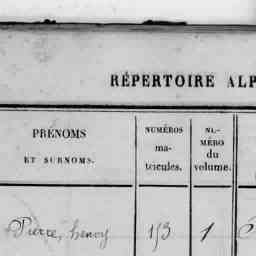 RÉPERTOIRE ALP
PRÉNOMS
ET SURNOMS.
NUMÉROS
ma-
tricules.
NU-
MÉRO
du
volume.
Pierre, henry 153 1 C